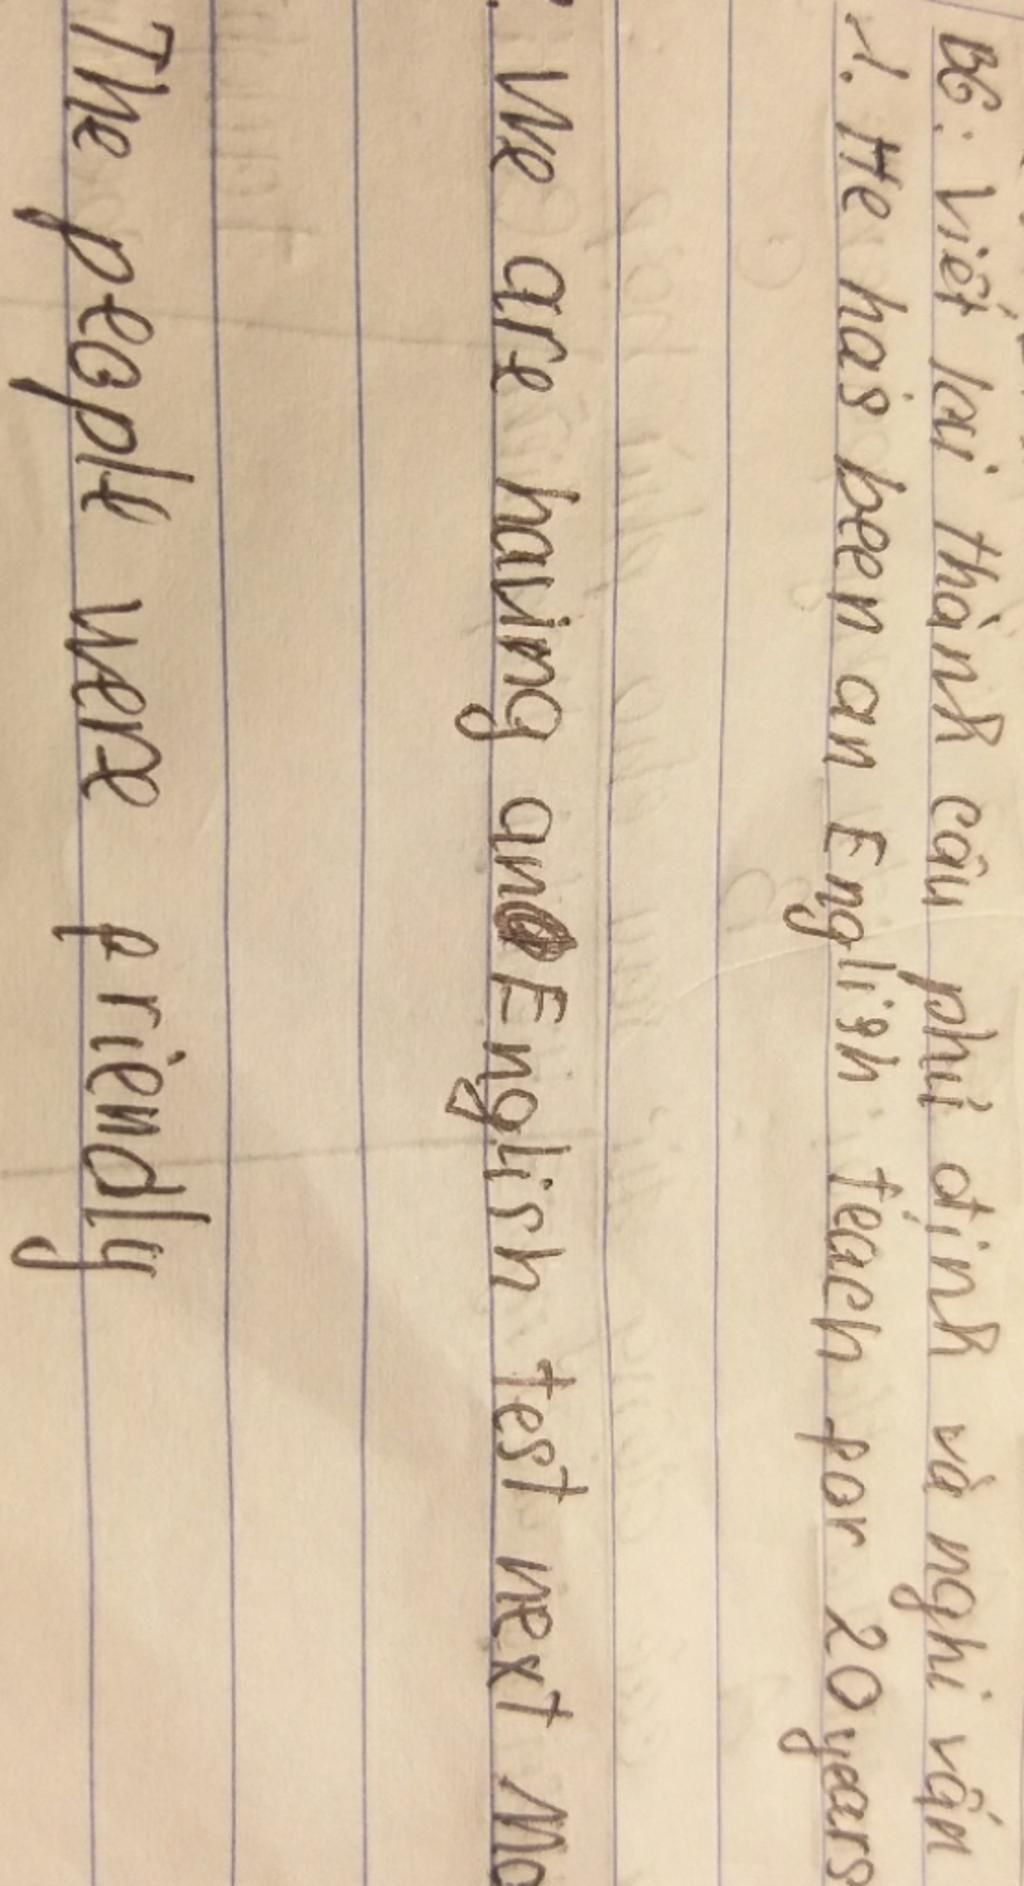 B6: Viết lại thành câu phủ định và nghi vấn
1. He has been an English teach for 20 years
We are having an English test next Mo
The people were friendly